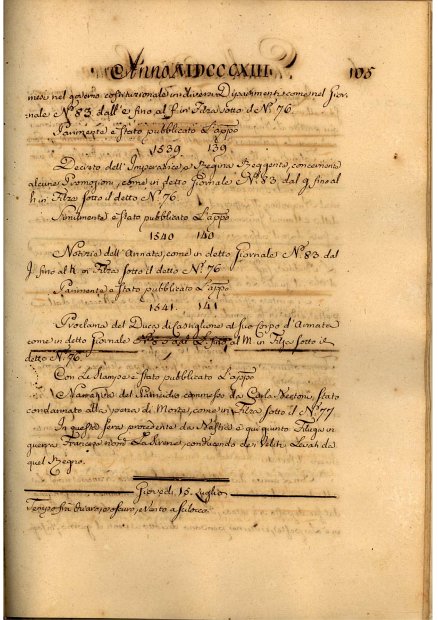 Anno MDCCCXIII. 105
nuta nel governo costituzionale in diversi Dipartimenti, come nel Gior-
nale N.º 83. dall' e fino al f in Filza sotto il N.º 76.
Parimente è stato pubblicato L'appo
1539 139
Decreto dell' Imperatrice Regina Reggente, concernente
alcune Promozioni, come in detto Giornale N.º 83. dal g fino al
h in Filza sotto il detto N.º 76.
Similmente è stato pubblicato L'appo
1540 140
Notizia dell' Armata, come in detto Giornale N.º 83 dal
fino al k in Filza sotto il detto N.º 76
Parimente è stato pubblicato L'appo
1541. 141
Proclama del Duca di Castiglione al suo Corpo d'Armata
come in detto Giornale N.º 83 dal L. fino al M. in Filza sotto il
detto N.º 76.
Con Le Stampe è stato pubblicato L'appo
Narrativa del commesso da Carlo stato
condannato alla pena di Morte, come in Filza sotto il N.º 77
In questa sera proveniente da è qui giunto
guerra Francese nom.º conducendo de'
quel Regno.
Giovedì 15. Luglio
Tempo fra chiaro, e oscuro, e Vento a Scilocco.